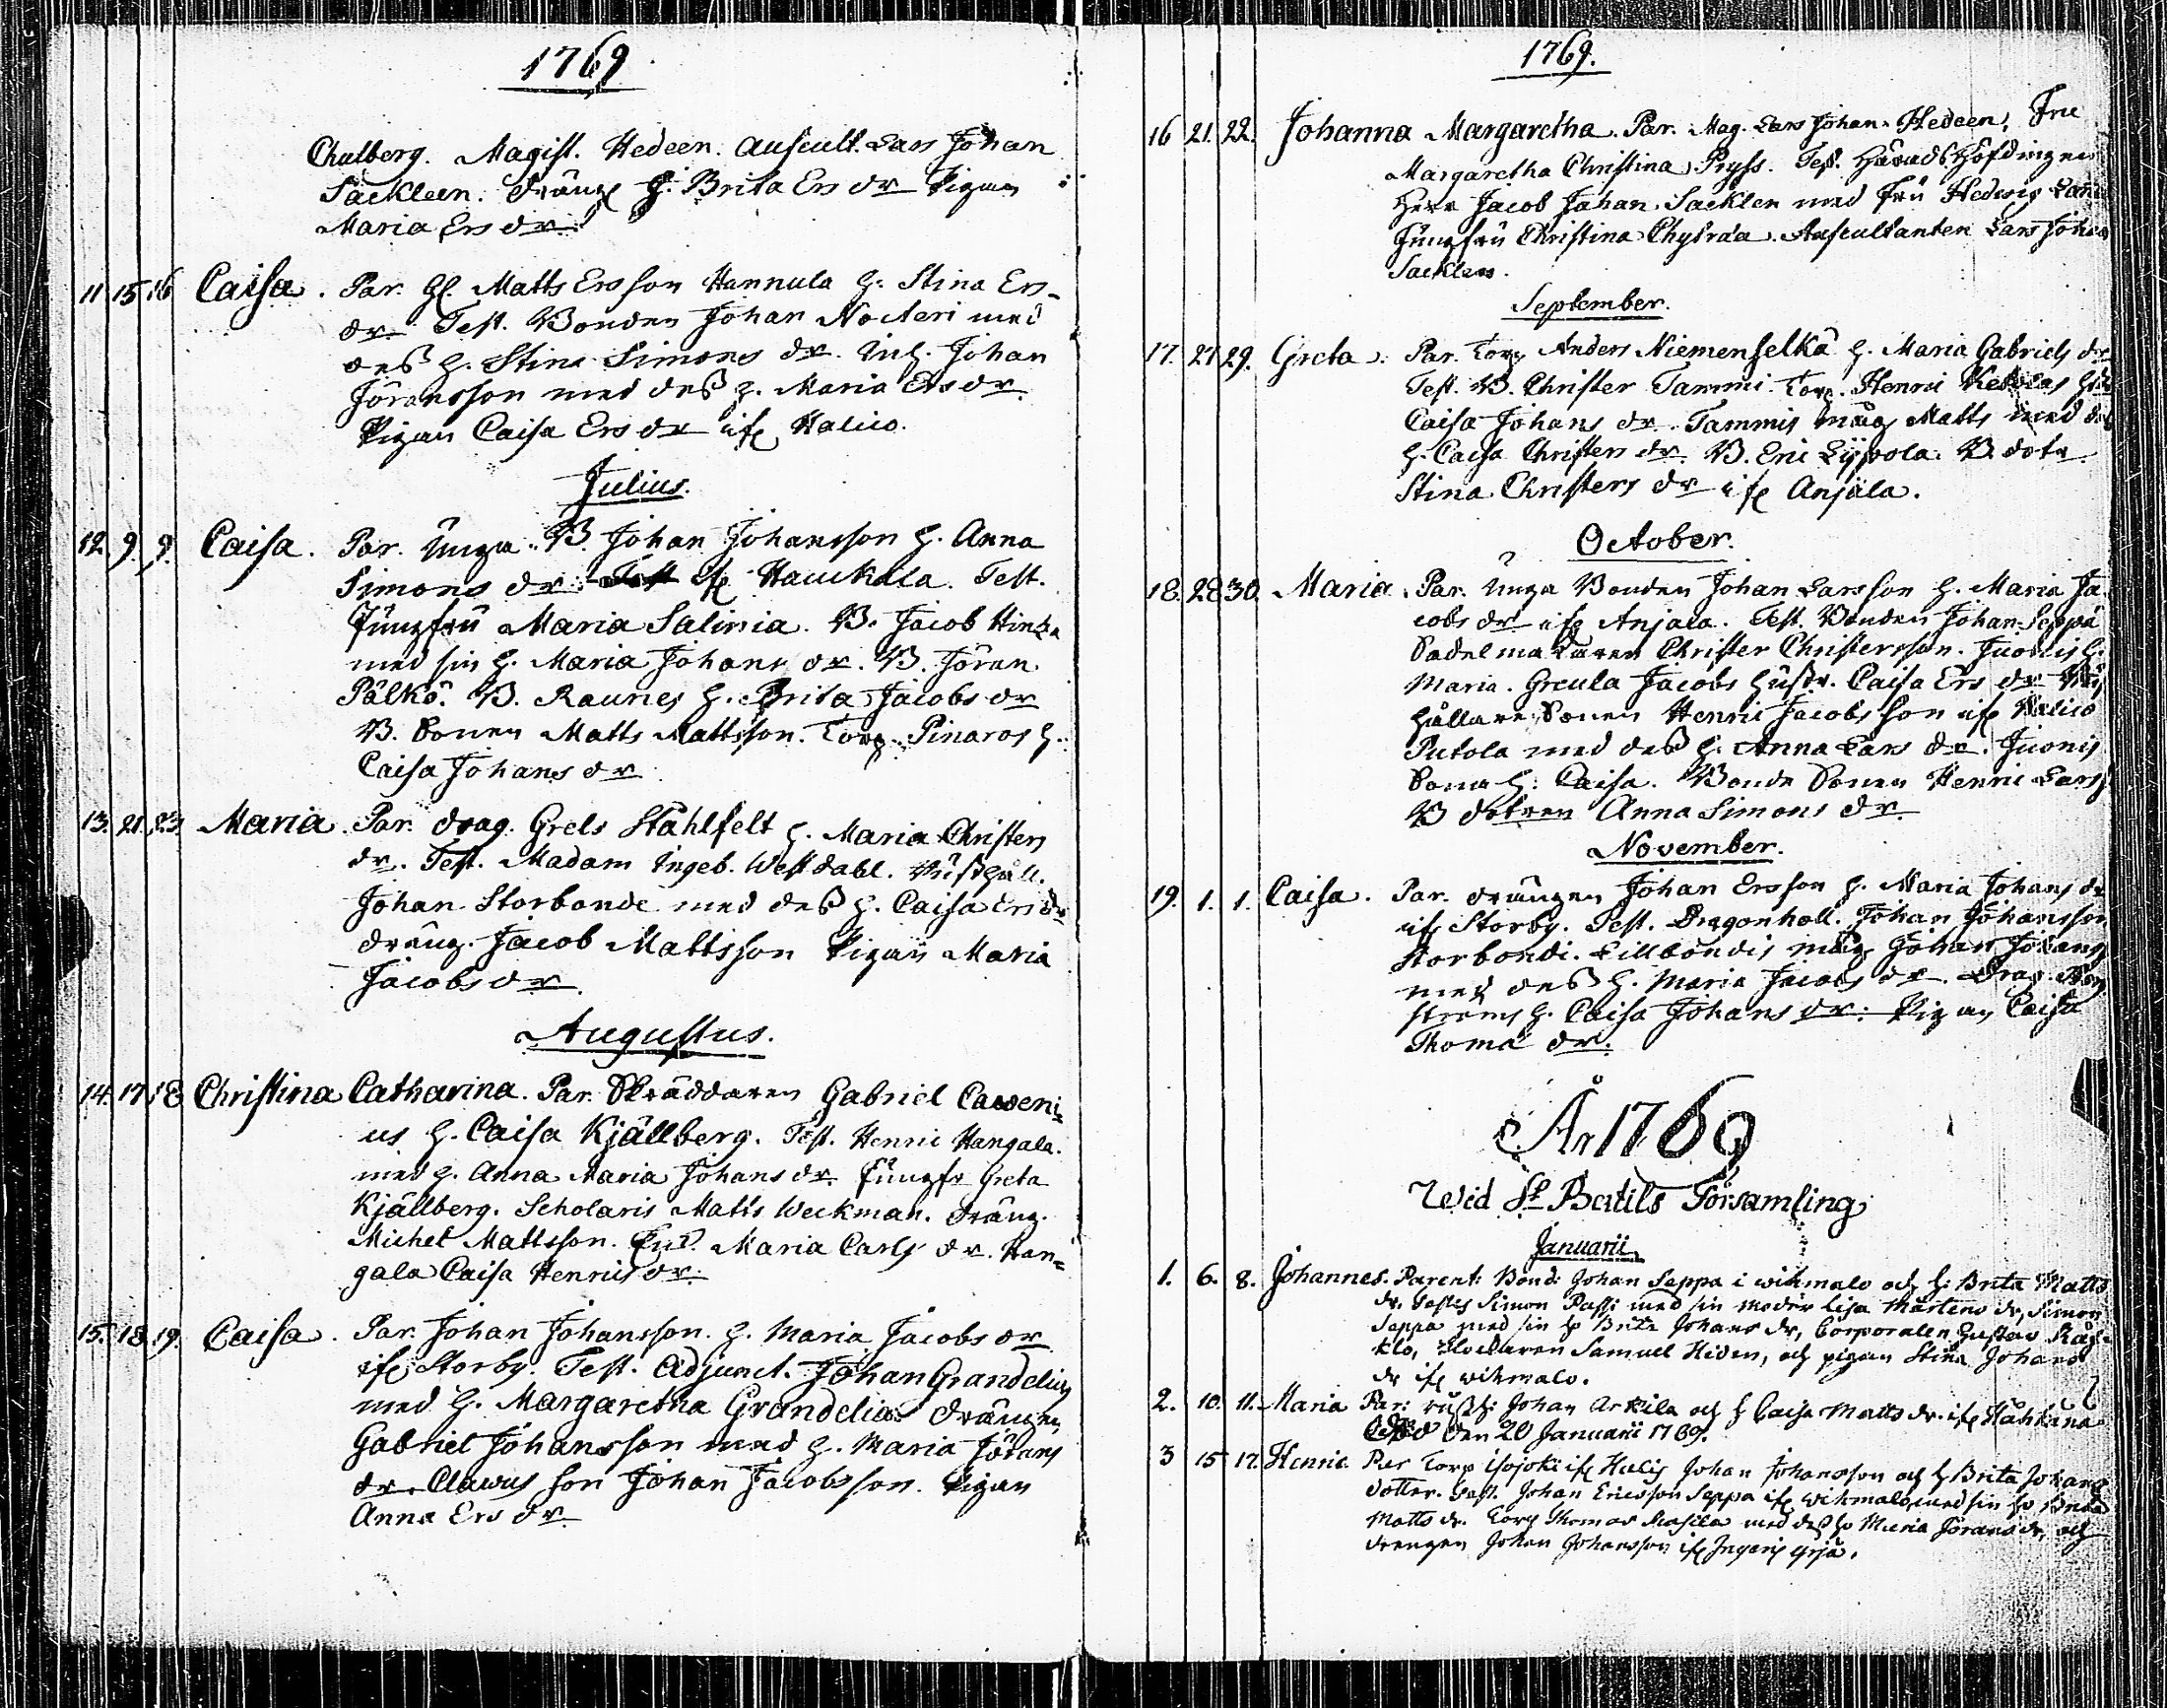 1769
Chulberg. Magist. Hedeen. Auscult. Lars Johan
Sackleen. Dräng h. Brita Ersdr Pigan
Maria Ersdr.
11 15 16 Caisa. Par. Matts Ersson Hannula h. Stina Ers-
dr. Test. Bonden Johan Nocteri med
dess h. Stina Simons dr. Inh. Johan
Jöransson med dess h. Maria Ersdr.
Pigan Caisa Ersdr if Halico.
Julius.
12. 9. 9. Caisa. Par. Unga B. Johan Johansson h. Anna
Simons dr. if Haukala. Test.
Jungfru Maria Salinia. B. Jacob Hinza
med sin h. Maria Johans dr. B. Jöran
Pälkö. B. Raunes h. Brita Jacobs dr
B. Sonen Matts Mattsson. Torp. Pinaros h.
Caisa Johans dr
13. 21. 23. Maria. Par. Drag. Grels Ståhlfelt h. Maria Christers
dr. Test. Madam Ingeb. Westdahl. Rusthåll.
Johan Storbonde med dess h. Caisa Ersdr
dräng. Jacob Mattsson Pigan Maria
Jacobsdr
Augustus.
14. 17. 18 Christina Catharina. Par. Skräddaren Gabriel Caweni=
us h. Caisa Kjällberg. Test. Henric Hangala.
med h. Anna Maria Johansdr. Jungfr Greta
Kjällberg. Scholaris Matts Weckman. Dräng.
Michel Mattsson. Maria Carls dr. Han=
gala Caisa Henricsdr.
15. 18. 19. Caisa. Par. Johan Johansson. h. Maria Jacobsdr
if Storby. Test. Adjunct. Johan Grandelius
med h. Margaretha Grandelia. Drängen
Gabriel Johansson med h. Maria Jörans
dr. Clawus son Johan Jacobsson. Pigan
Anna Ersdr.
1769.
16 21. 22. Johanna Margaretha. Par. Mag. Lars Johan Hedeen, Fru
Margaretha Christina Pryss. Test. Häradshöfdingen
Herr Jacob Johan Sacklen med Fru Hedevig
Jungfru Christina Chydræa. Auscultanten Lars Johan
Sacklen.
September.
17. 27 29. Greta. Par. Torp Anders Niemenselkä h. Maria Gabriels dr
Test. B. Christer Tammi. Torp. Henric Ketolas
Caisa Johans dr. Tammis måg Matts med dess
h. Caisa Christers dr. B. Eric Lypola. B. dotr
Stina Christers dr if Anjala.
October.
18. 28 30. Maria. Par. Unga Bonden Johan Larsson h. Maria Ja
cobs dr if Anjala. Test. Bonden Johan Seppä
Sadelmakaren Christer Christersson. Juonis h.
Maria. Grcula Jacobs hustr. Caisa Ers dr Rust
hållare Sonen Henric Jacobsson if Halico
Putola med dess h. Anna Lars dr. Juonis
Sona h. Caisa. Bonde Sonen Henric Lars
B dotren Anna Simons dr.
November.
19. 1. 1. Caisa. Par. Drängen Johan Ersson h. Maria Johans dr
if Storby. Test. Dragonhåll. Johan Johansson
Storbondi. Lillbondis måg Johan Johans
med dess h. Maria Jacobs dr. Drag.
ströms h. Caisa Johans dr: Pigan Caisa
Thomæ dr.
År 1769
Wid St Bertils Församling
Januarii
1. 6. 8. Johannes. Parent: Bond: Johan Seppä i wihmalo och h: Brita Matts
dr, Testes Simon Passi med sin moder Lisa Mårtens dr, Simon
Seppä med sin h. Brita Johans dr, Corporalen Gustav
Klockaren Samuel Hiden, och pigan Stina Johans
dr if wihmalo.
2. 10. 11. Maria Par: rusth: Johan Arkila och h Caisa Matts dr. if
den 20 Januarii 1769.
3 15 17. Henric Par Torp Isojoki if Johan Johansson och h Brita Johans
dotter. Test. Johan Ericsson Seppä if wihmalo med sin h Brita
Matts dr. Torp Thomas med dess h Maria Jörans dr, och
drengen Johan Johansson if